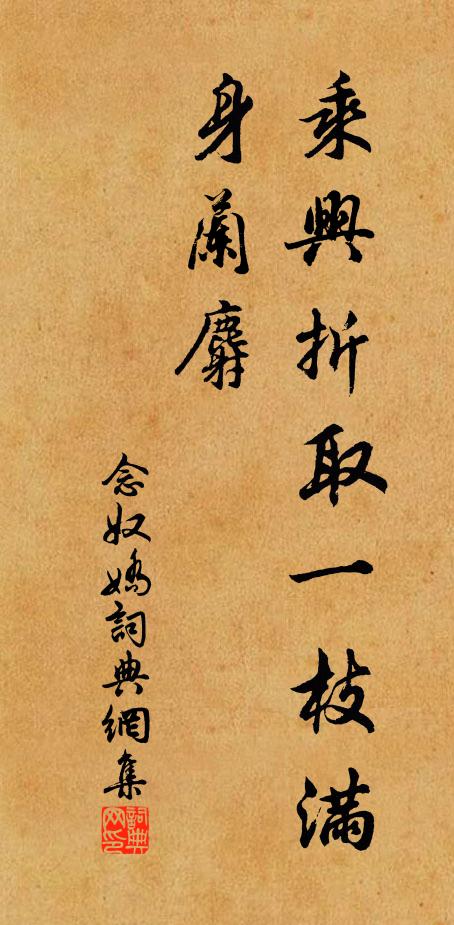 乘興折取一枝滿
身蘭麝
念奴嬌詞典網集
詞典网印